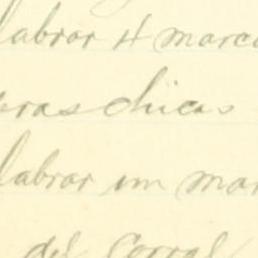 labrar 4 marco
eras chicas
labrar un mar
del Corral